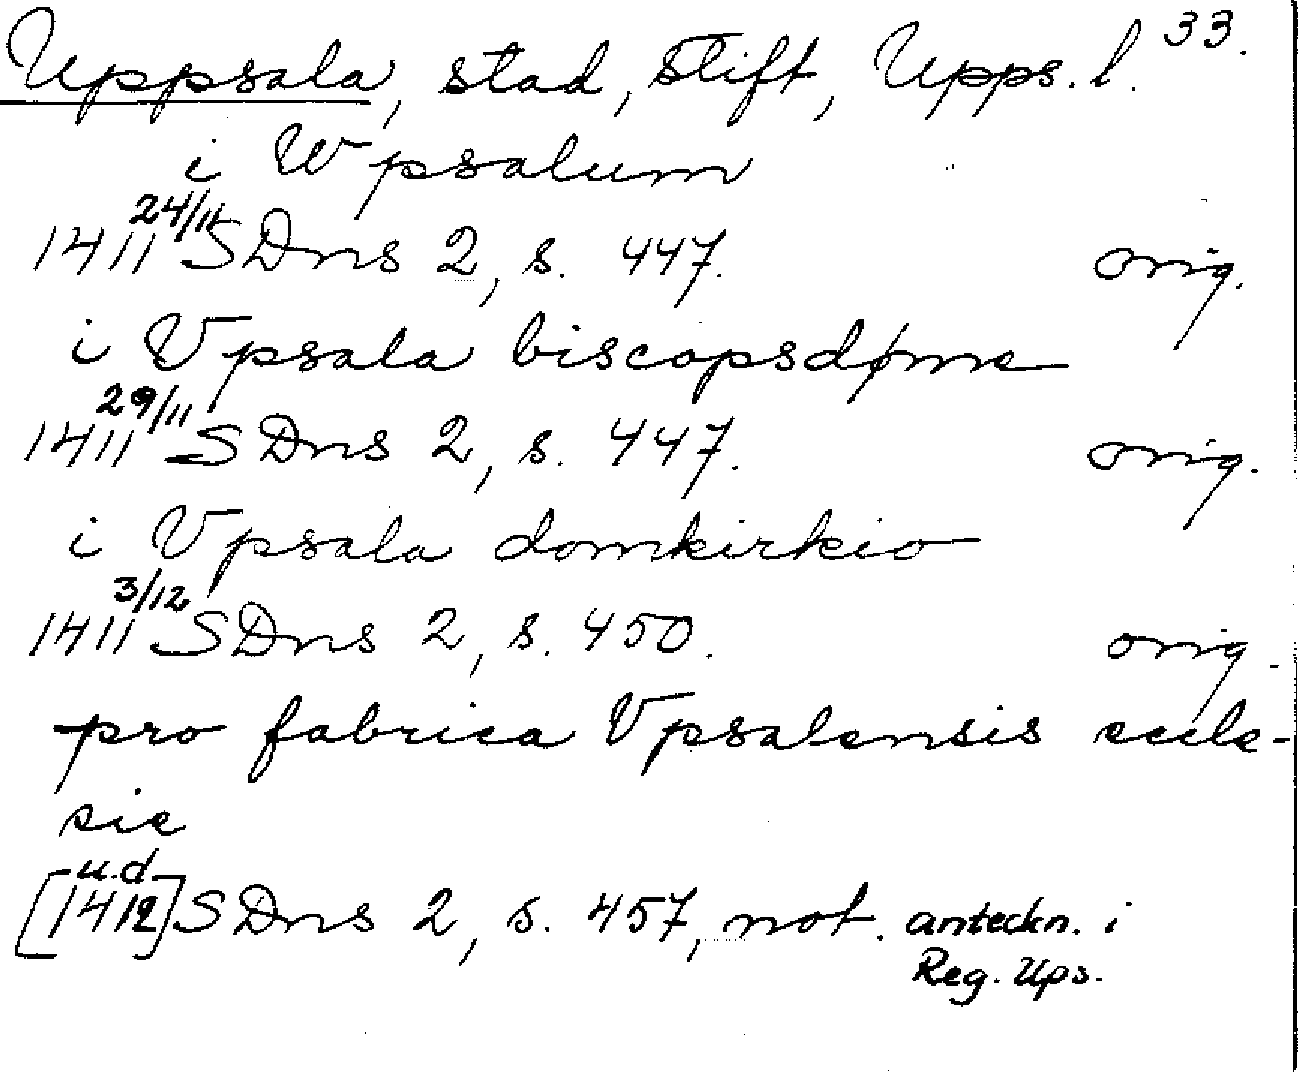 Uppsala, stad, stift, Upps. l. 33.
i Wpsalum
1411 24/11 SDns 2, s. 447. orig.
i Vpsala biscopsdøme
1411 29/11 SDns 2, s. 447. orig.
i Vpsala domkirkio
1411 3/12 SDns 2, s. 450. orig.
pro fabrica Vpsalensis eccle-
sie
[1412] u.d. SDns 2, s. 457, not. anteckn. i
Reg. Ups.